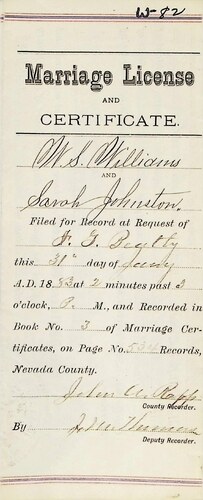 W-82
Marriage License
AND
CERTIFICATE.
W. S. Williams
AND
Sarah Johnston.
Filed for Record at Request of
this 31st day of
A.D. 1883 at 2 minutes past 2
o'clock, P. M., and Recorded in
Book No. 3 of Marriage Cer-
tificates, on Page No. Records,
Nevada County.
John A. Rapp
County Recorder.
By
Deputy Recorder.